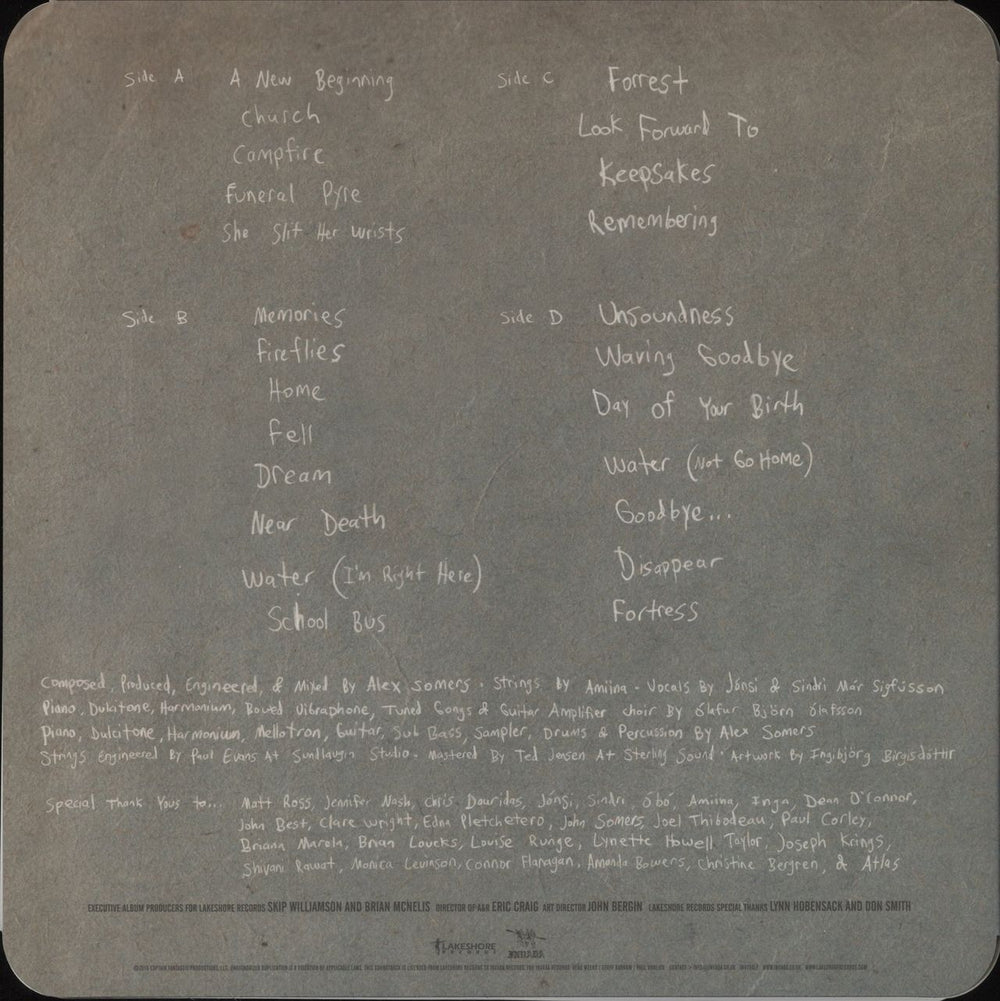 Side A
A New Beginning
Church
Campfire
Funeral Pyre
She Slit Her Wrists
Side B
Memories
Fireflies
Home
Fell
Dream
Near Death
Water (I'm Right Here)
School Bus
Side C
Forrest
Look Forward To
Keepsakes
Remembering
Side D
Unsoundness
Waving Goodbye
Day of Your Birth
Water (Not Go Home)
Goodbye...
Disappear
Fortress
Composed, Produced, Engineered, & Mixed By Alex Somers · Strings By Amiina · Vocals By Jónsi & Sindri Már Sigfússon
Piano, Dulcitone, Harmonium, Bowed Vibraphone, Tuned Gongs & Guitar Amplifier Choir By Ólafur Björn Ólafsson
Piano, Dulcitone, Harmonium, Mellotron, Guitar, Sub Bass, Sampler, Drums & Percussion By Alex Somers
Strings Engineered By Paul Evans At Sundlaugin Studio · Mastered By Ted Jensen At Sterling Sound · Artwork By Ingibjörg Birgisdóttir
Special Thank Yous to... Matt Ross, Jennifer Nash, Chris Douridas, Jónsi, Sindri, Óbó, Amiina, Inga, Dean O'Connor,
John Best, Clare Wright, Edna Pletchetero, John Somers, Joel Thibodeau, Paul Corley,
Briana Marela, Brian Loucks, Louise Runge, Lynette Howell Taylor, Joseph Krings,
Shivani Rawat, Monica Levinson, Connor Flanagan, Amanda Bowens, Christine Bergren, & Atlas
EXECUTIVE ALBUM PRODUCERS FOR LAKESHORE RECORDS SKIP WILLIAMSON AND BRIAN MCNELIS DIRECTOR OF A&R ERIC CRAIG ART DIRECTOR JOHN BERGIN LAKESHORE RECORDS SPECIAL THANKS LYNN HOBENSACK AND DON SMITH
LAKESHORE RECORDS INVADA